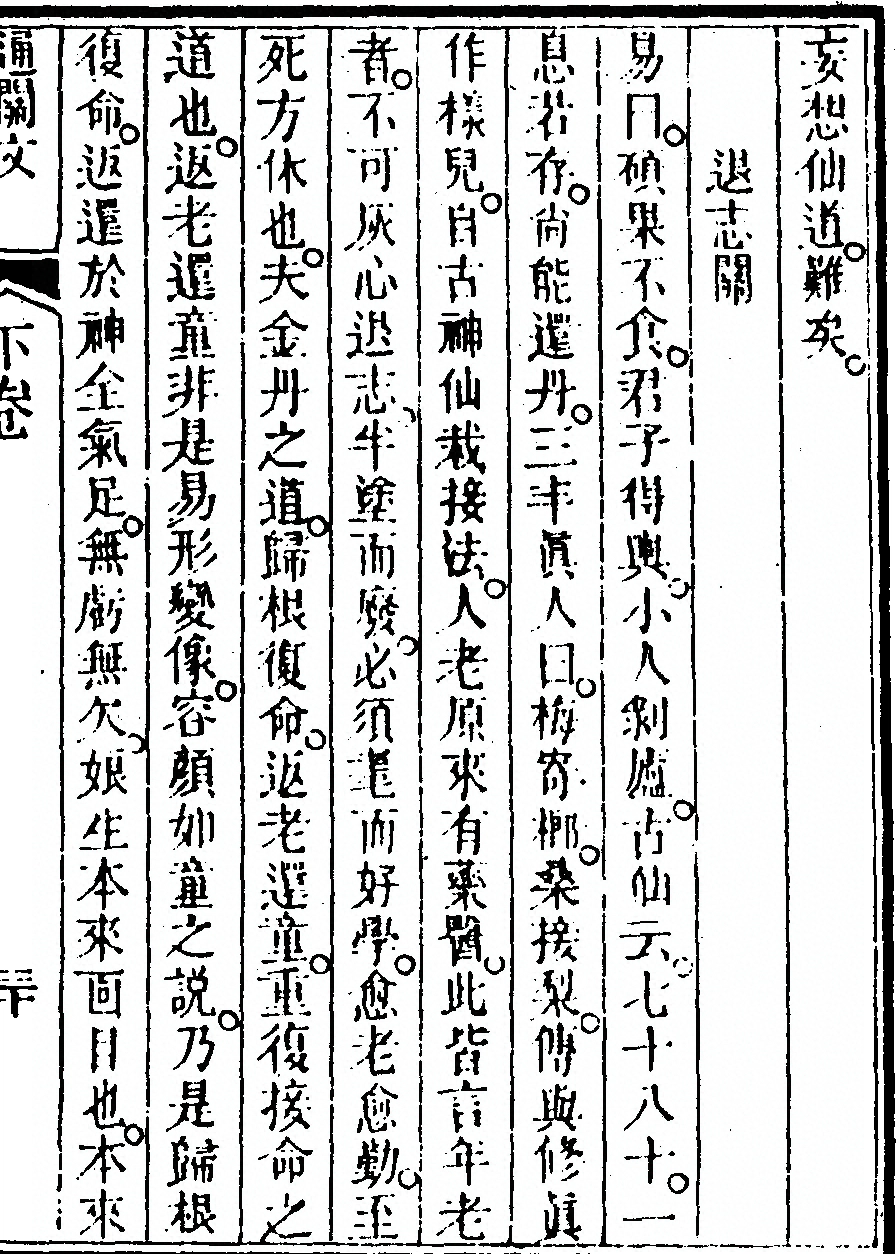 妄想仙道。難矣。
退志關
易曰。碩果不食。君子得輿。小人剝廬。古仙云。七十八十。一
息若存。尚能還丹。三丰眞人曰。梅寄柳。桑接梨。傳與修眞
作樣兒。自古神仙栽接法。人老原來有藥醫。此皆言年老
者。不可灰心退志。半塗而廢。必須耄而好學。愈老愈勤。至
死方休也。夫金丹之道。歸根復命。返老還童。重復接命之
道也。返老還童非是易形變像。容顏如童之說。乃是歸根
復命。返還於神全氣足。無虧無欠。娘生本來面目也。本來
通關文
下卷
三十